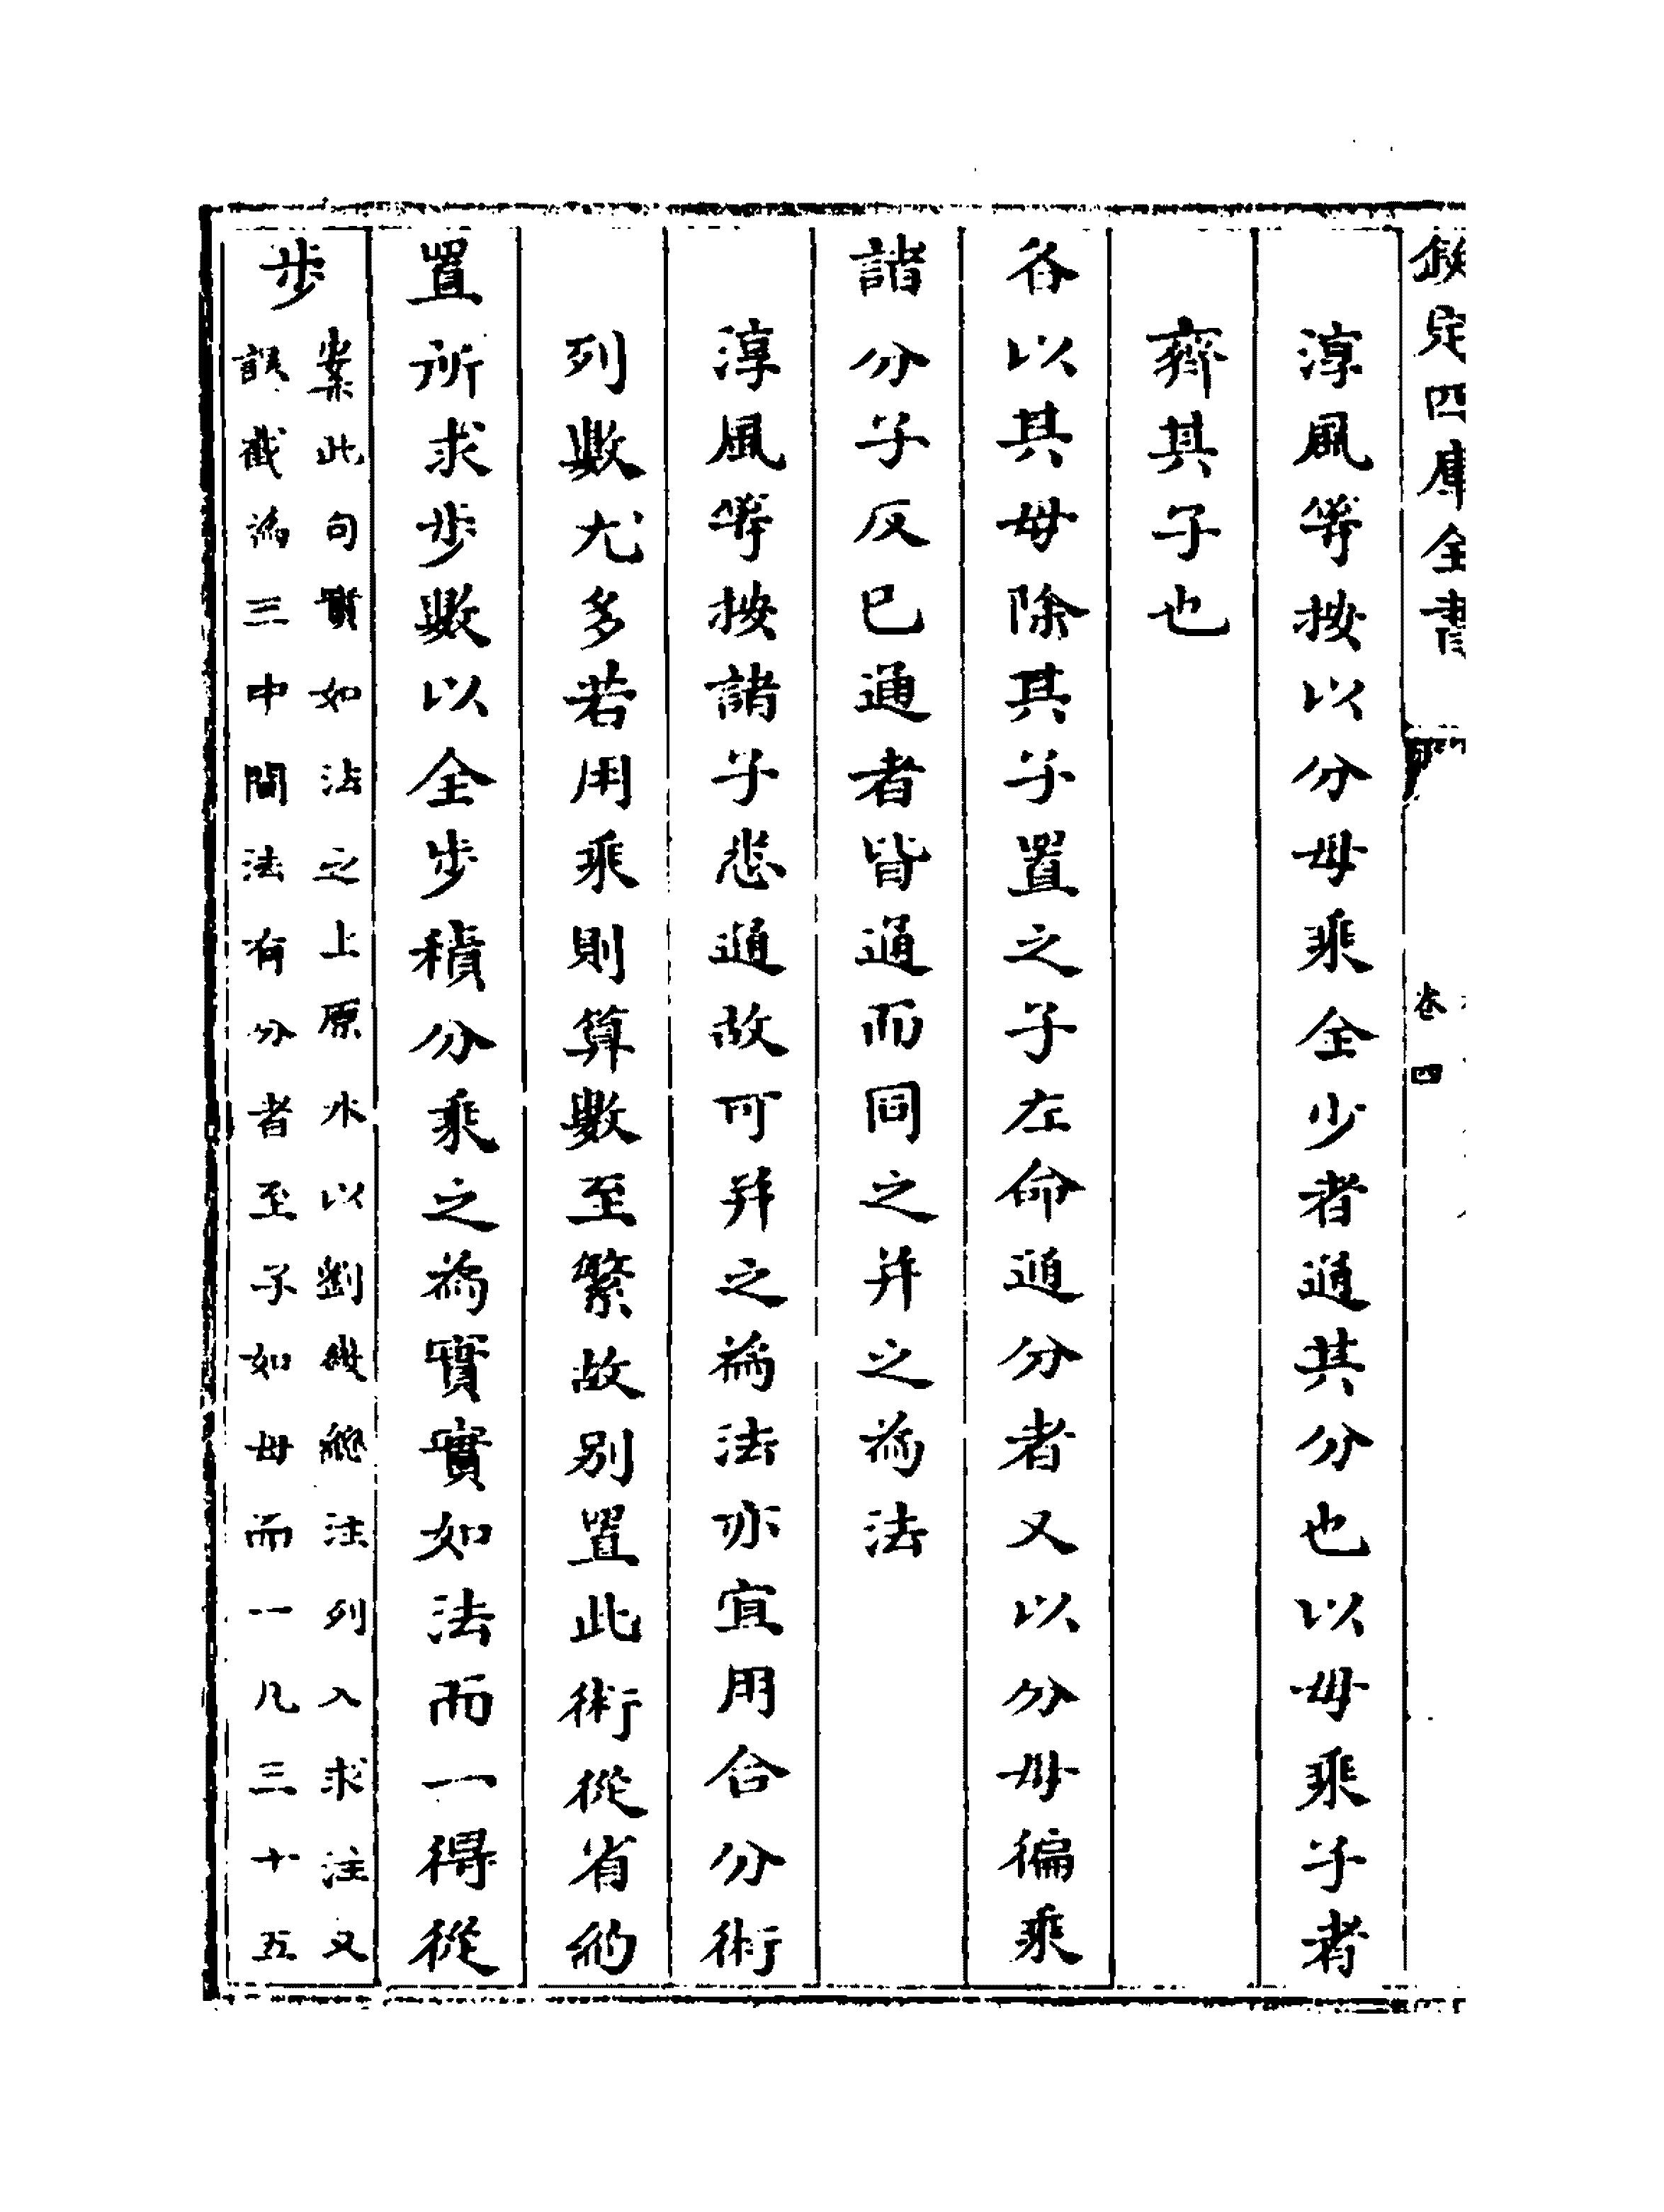 欽定四庫全書
卷四
淳風等按以分母乘全少者通其分也以母乘子者
齊其子也
各以其母除其子置之子左命通分者又以分母徧乘
諸分子及已通者皆通而同之并之為法
淳風等按諸子悉通故可并之為法亦宜用合分術
列數尤多若用乘則算數至繁故別置此術從省約
置所求步數以全步積分乘之為實實如法而一得從
步
案此句實如法之上原本以劉徽總注列入求注又
誤截為三中間法有分者至子如母而一凡三十五